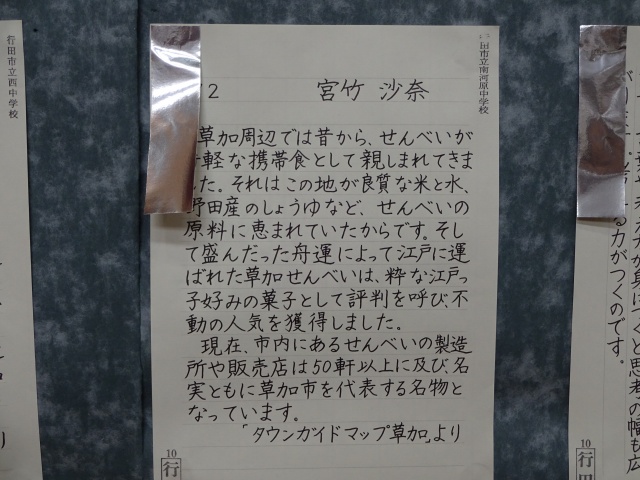 行田市立西中学校
田市立南河原中学校
2 宮竹 沙奈
草加周辺では昔から、せんべいが
軽な携帯食として親しまれてきま
した。それはこの地が良質な米と水、
野田産のしょうゆなど、せんべいの
原料に恵まれていたからです。そし
て盛んだった舟運によって江戸に運
ばれた草加せんべいは、粋な江戸っ
子好みの菓子として評判を呼び不
動の人気を獲得しました。
現在、市内にあるせんべいの製造
所や販売店は50軒以上に及び、名
実ともに草加市を代表する名物と
なっています。
「タウンガイドマップ草加」より
10
行
り
10
行田
と思考の幅も広
力がつくのです。